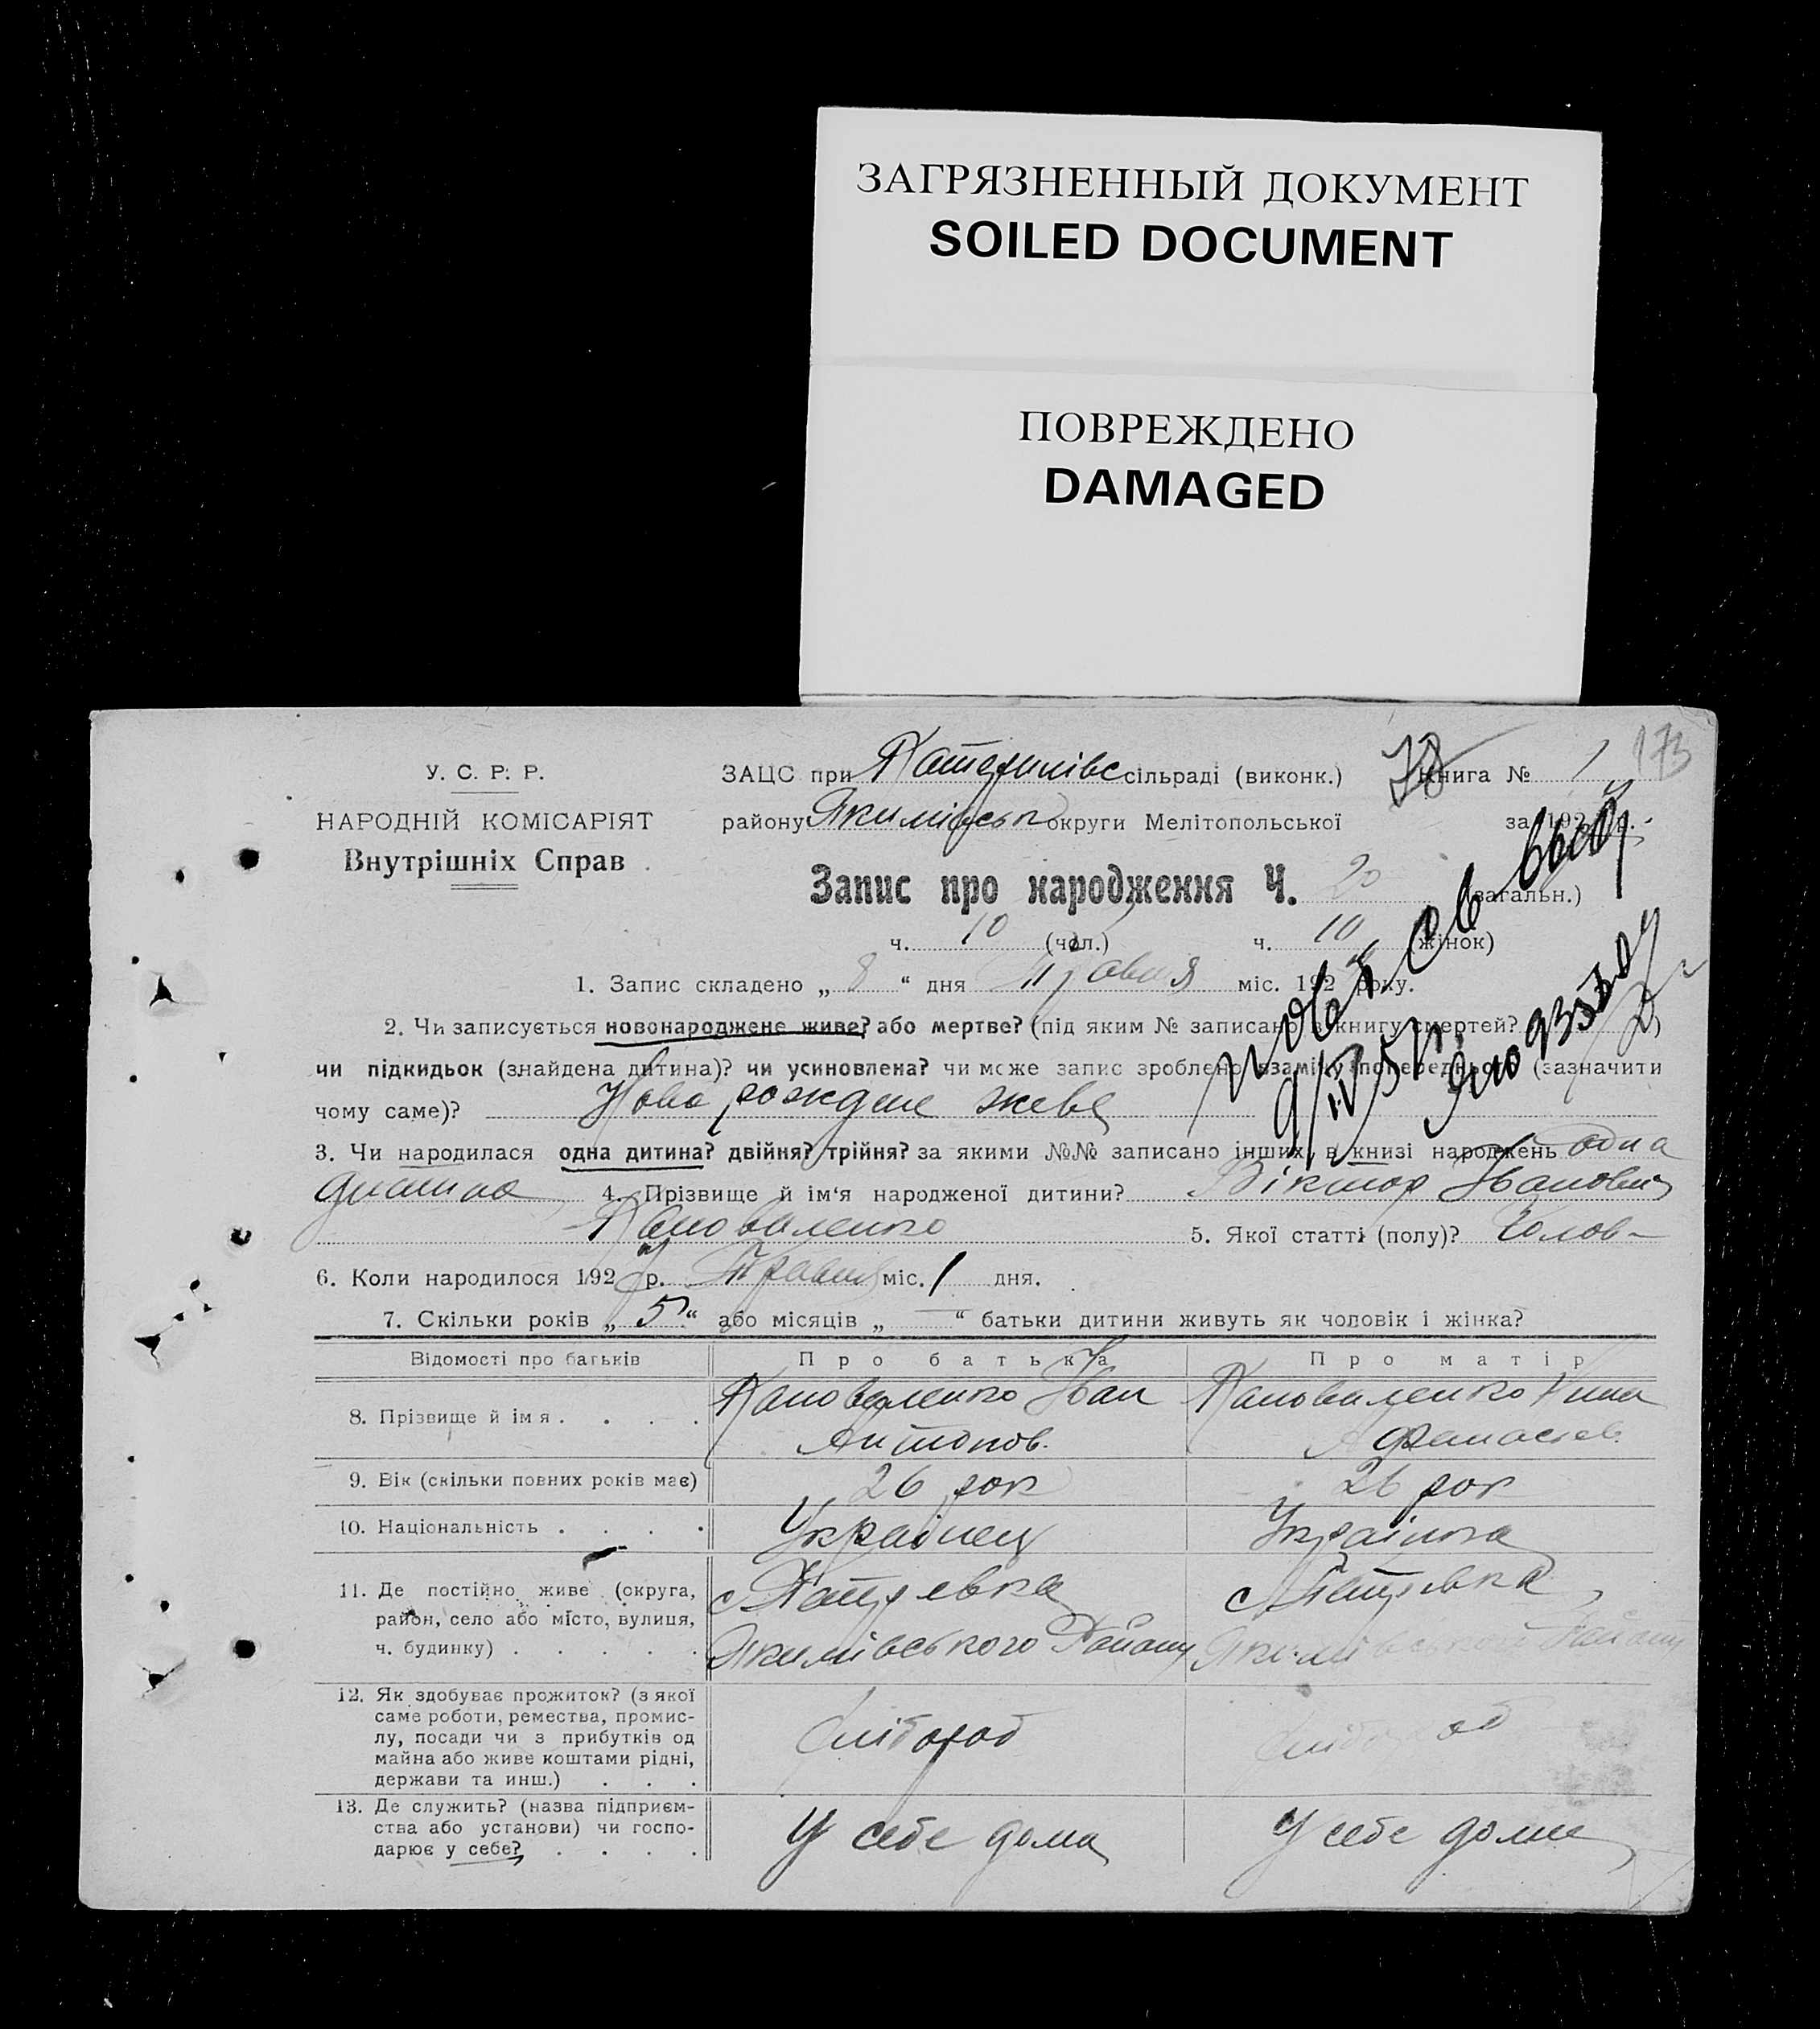 ЗАГРЯЗНЕННЫЙ ДОКУМЕНТ
SOILED DOCUMENT
ПОВРЕЖДЕНО
DAMAGED
У. С. Р. Р.
НАРОДНІЙ КОМІСАРІЯТ
Внутрішніх Справ
173
ЗАЦС при сільраді (виконк.) Книга № 1
району Якимівськ округи Мелітопольської за 192 р.
Запис про народження Ч. 20 (загальн.)
ч. 10 (чол.) ч. 10 (жінок)
1. Запис складено „ 8 “ дня Травня міс. 192 року.
2. Чи записується новонароджене живе? або мертве? (під яким № записано в книгу смертей?)
чи підкидьок (знайдена дитина)? чи усиновлена? чи може запис зроблено взаміну попереднього (зазначити
чому саме)? Ново рождене живе
3. Чи народилася одна дитина? двійня? трійня? за якими №№ записано інших, в книзі народжень одна
дитина 4. Прізвище й ім‘я народженої дитини? Віктор Іванович
Кановаленко 5. Якої статті (полу)? Чолов-
6. Коли народилося 192 р. Травня міс. 1 дня.
7. Скільки років „ 5 “ або місяців „ — “ батьки дитини живуть як чоловік і жінка?
Відомості про батьків Про батька Про матір
8. Прізвище й імя . . . . Кановаленко Іван Кановаленко Нина
Антонов. Афанасіев.
9. Вік (скільки повних років має) 26 рок 26 рок
10. Національність . . . . Українец Українка
11. Де постійно живе (округа,
район, село або місто, вулиця,
ч. будинку) . . . . . Якимівського Району Якимівського Району
12. Як здобуває прожиток? (з якої
саме роботи, ремества, промис-
лу, посади чи з прибутків од
майна або живе коштами рідні,
держави та инш.) . . . хлібороб хлібороб
13. Де служить? (назва підприєм-
ства або установи) чи госпо-
дарює у себе? . . . . У себе дома У себе дома